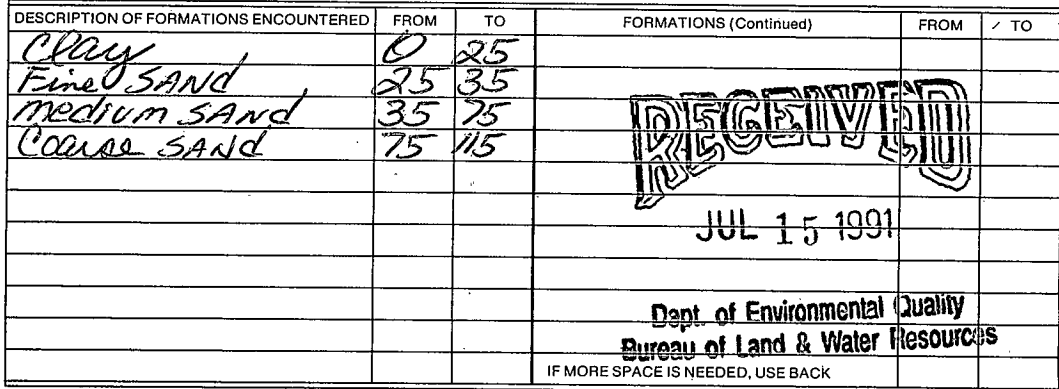 DESCRIPTION OF FORMATIONS ENCOUNTERED FROM TO FORMATIONS (Continued) FROM TO
Clay 0 25
Fine SAND 25 35
medium SAND 35 75
Coarse SAND 75 115
RECEIVED
JUL 15 1991
Dept. of Environmental Quality
Bureau of Land & Water Resources
IF MORE SPACE IS NEEDED, USE BACK